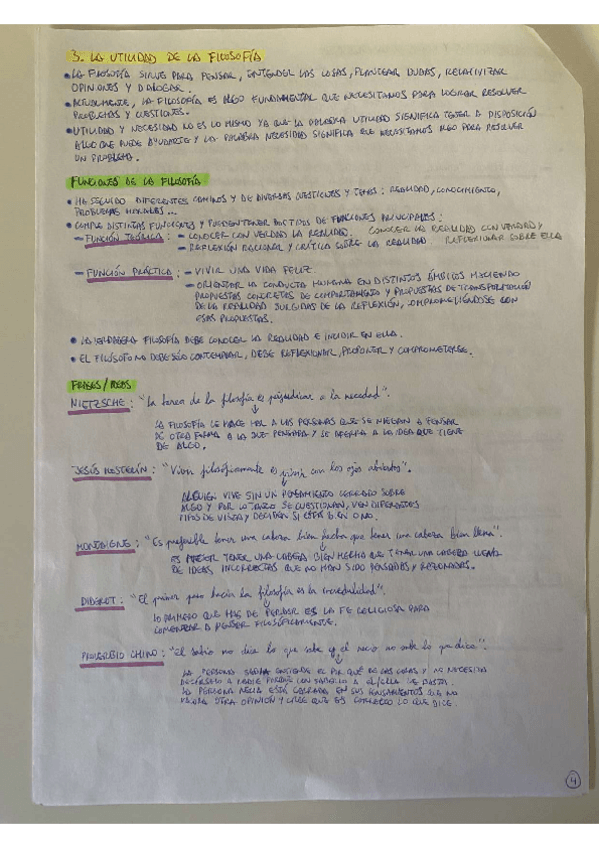 3. LA UTILIDAD DE LA FILOSOFÍA
• LA FILOSOFÍA SIRVE PARA PENSAR, ENTENDER LAS COSAS, PLANTEAR DUDAS, RELATIVIZAR
OPINIONES Y DIALOGAR.
• ACTUALMENTE, LA FILOSOFÍA ES ALGO FUNDAMENTAL QUE NECESITAMOS PARA LOGRAR RESOLVER
PROBLEMAS Y CUESTIONES.
• UTILIDAD Y NECESIDAD NO ES LO MISMO YA QUE LA PALABRA UTILIDAD SIGNIFICA TENER A DISPOSICIÓN
ALGO QUE PUEDE AYUDARTE Y LA PALABRA NECESIDAD SIGNIFICA QUE NECESITAMOS ALGO PARA RESOLVER
UN PROBLEMA.
FUNCIONES DE LA FILOSOFÍA
• HA SEGUIDO DIFERENTES CAMINOS Y DE DIVERSAS CUESTIONES Y TEMAS: REALIDAD, CONOCIMIENTO,
PROBLEMAS HUMANOS...
• CUMPLE DISTINTAS FUNCIONES Y PUEDEN TENER DOS TIPOS DE FUNCIONES PRINCIPALES:
— FUNCIÓN TEÓRICA: — CONOCER CON VERDAD LA REALIDAD. CONOCER LA REALIDAD CON VERDAD Y
— REFLEXIÓN RACIONAL Y CRÍTICA SOBRE LA REALIDAD REFLEXIONAR SOBRE ELLA
— FUNCIÓN PRÁCTICA: — VIVIR UNA VIDA FELIZ
— ORIENTAR LA CONDUCTA HUMANA EN DISTINTOS ÁMBITOS HACIENDO
PROPUESTAS CONCRETAS DE COMPORTAMIENTO Y PROPUESTAS DE TRANSFORMACIÓN
DE LA REALIDAD SURGIDAS DE LA REFLEXIÓN, COMPROMETIÉNDOSE CON
ESAS PROPUESTAS.
• LA VERDADERA FILOSOFÍA DEBE CONOCER LA REALIDAD E INCIDIR EN ELLA.
• EL FILÓSOFO NO DEBE SÓLO CONTEMPLAR, DEBE REFLEXIONAR, PROPONER Y COMPROMETERSE.
FRASES/IDEAS
NIETZSCHE: "La tarea de la filosofía es perjudicar a la necedad".
LA FILOSOFÍA LE HACE MAL A LAS PERSONAS QUE SE NIEGAN A PENSAR
DE OTRA FORMA A LA QUE PENSABA Y SE AFERRA A LA IDEA QUE TIENE
DE ALGO.
JESÚS: "Vivir filosóficamente es vivir con los ojos abiertos".
ALGUIEN VIVE SIN UN PENSAMIENTO CERRADO SOBRE
ALGO Y POR LO TANTO SE CUESTIONAN, VEN DIFERENTES
TIPOS DE VISTA Y DECIDEN SI ESTÁ BIEN O NO.
MONTAIGNE: "Es preferible tener una cabeza bien hecha que tener una cabeza bien llena".
ES MEJOR TENER UNA CABEZA BIEN HECHA QUE TENER UNA CABEZA LLENA
DE IDEAS INCORRECTAS QUE NO HAN SIDO PENSADAS Y RAZONADAS.
DIDEROT: "El primer paso hacia la filosofía es la incredulidad".
LO PRIMERO QUE HAS DE PERDER ES LA FE RELIGIOSA PARA
COMENZAR A PENSAR FILOSÓFICAMENTE.
PROVERBIO CHINO: "El sabio no dice lo que sabe y el necio no sabe lo que dice".
LA PERSONA SABIA ENTIENDE EL POR QUÉ DE LAS COSAS Y NO NECESITA
DECÍRSELO A NADIE PORQUE CON SABERLO A ÉL/ELLA LE BASTA.
LA PERSONA NECIA ESTÁ CERRADA EN SUS PENSAMIENTOS QUE NO
OTRA OPINIÓN Y CREE QUE ES CORRECTO LO QUE DICE.
4